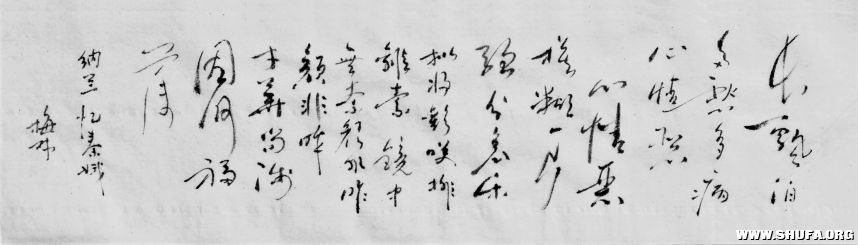 长飘泊
多愁多病
心情恶
心情恶
模糊一片
强分哀乐
拟将欢笑排
離索镜中
無奈颜非昨
颜非昨
才華尚浅
因何福
薄
纳兰忆秦娥
WWW.SHUFA.ORG